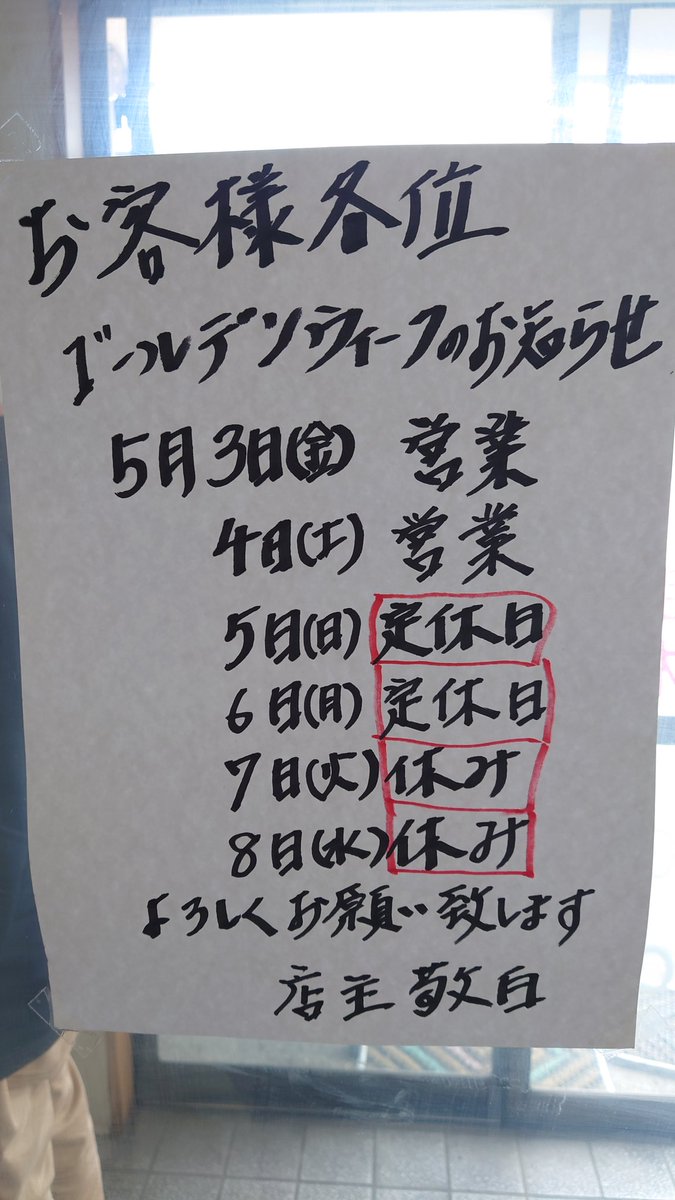 お客様各位
ゴールデンウィークのお知らせ
5月3日(金) 営業
4日(土) 営業
5日(日) 定休日
6日(月) 定休日
7日(火) 休み
8日(水) 休み
よろしくお願い致します
店主 敬白